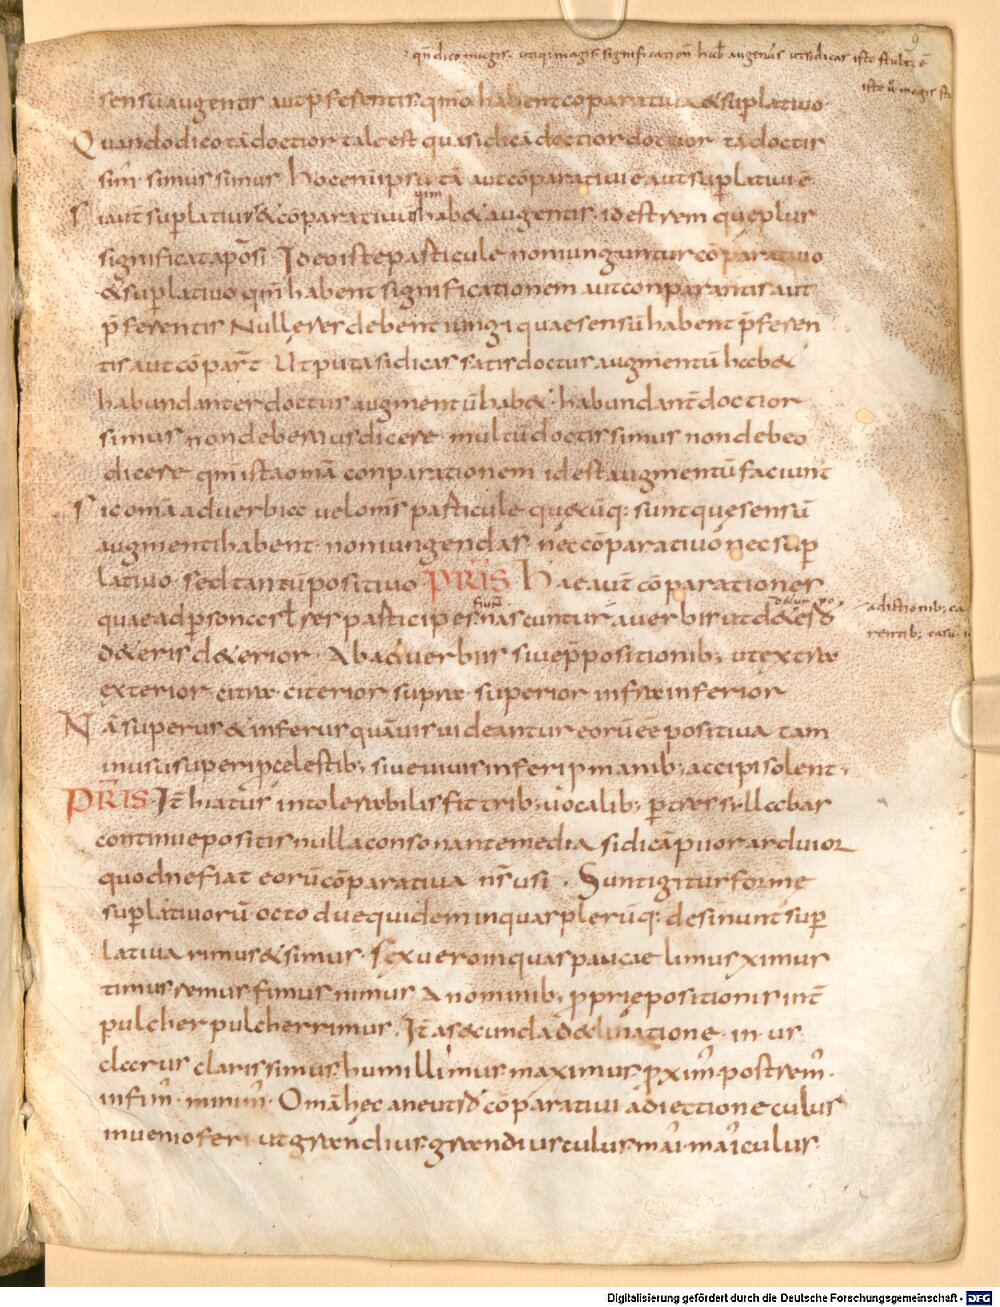 9
qm̄ dico magis. utiq; magis significationē hab& augentis ut si dicas iste stult; ē
iste ū magis stu
sensū augentis aut p̄ferentis. qm̄ habent cōparatiua & suplatiuo.
Quando dico tā doctior tale est quasi dicā doctior doctior tā doctis
sim̄. simus simus hoc enī ipsū tā aut cōparatiuū ē aut suplatiuū ē
Si aut̄ suplatiuus & cōparatiuus uim hab& augentis. id est rem que plus
significat a posi. Ideo iste particule non iunguntur cōparatiuo
& suplatiuo qm̄ habent significationem aut conparantis aut
p̄ferentis Nulle res debent iungi quae sensū habent p̄feren
tis aut cōpar̄t Ut puta si dicas satis doctus augmentū hab&
habundanter doctus augmentū hab&. habundant̄ doctior
simus non debemus dicere multū doctissimus non debeo
dicere qm̄ ista om̄a conparationem id est augmentū faciunt
Sic om̄a aduerbia uel om̄s particule quecūq; sunt que sensū
augmenti habent. non iungendas. nec cōparatiuo nec sup
latiuo. sed tantū positiuo PRIS Hae aut̄ cōparationes
quae ad personas l̄ res participes fiunt nascuntur a uerbis ut d&ero
d&eris d&erior. Ab aduerbiis siue p̄positionib; ut extra
exterior. citra. citerior supra. superior infra inferior
adiectionib; ca
rentib; casu
Nā superus & inferus quāuis uideantur eorū eē positiua tam
inusu superi p celestib; siue uiuis inferi p manib; accipi solent.
PRIS. It̄ hiatus intolerabilis fit trib; uocalib; p tres syllabas
continue positis nulla consonante media si dicā puor arduior
quod ne fiat eorū cōparatiua nr̄ usi. Sunt igitur forme
suplatiuorū octo due quidem in quas plerūq; desinunt sup
latiua rimus & simus. Sex uero in quas paucae limus ximus
timus remus fimus nimus A nominib; pprie positionis int̄
pulcher pulcherrimus. It̄ a secunda declinatione. in. us.
clarus clarissimus. humillimus maximus pxim̄. postrem̄.
infim̄. minim̄. Omā hec a neutris cōparatiui adiectione culus
inuenio feri ut grandius. grandiusculus. mai. maiculus.
Digitalisierung gefördert durch die Deutsche Forschungsgemeinschaft - DFG